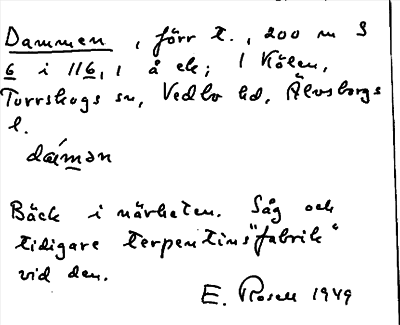 Dammen, förr t., 200 m S
6 i 116, 1 å ek; 1 Kölen,
Torrskogs sn, Vedbo hd, Älvsborgs
l.
dám̲ən
Bäck i närheten. Såg och
tidigare terpentins"fabrik"
vid den.
E. Rosell 1949